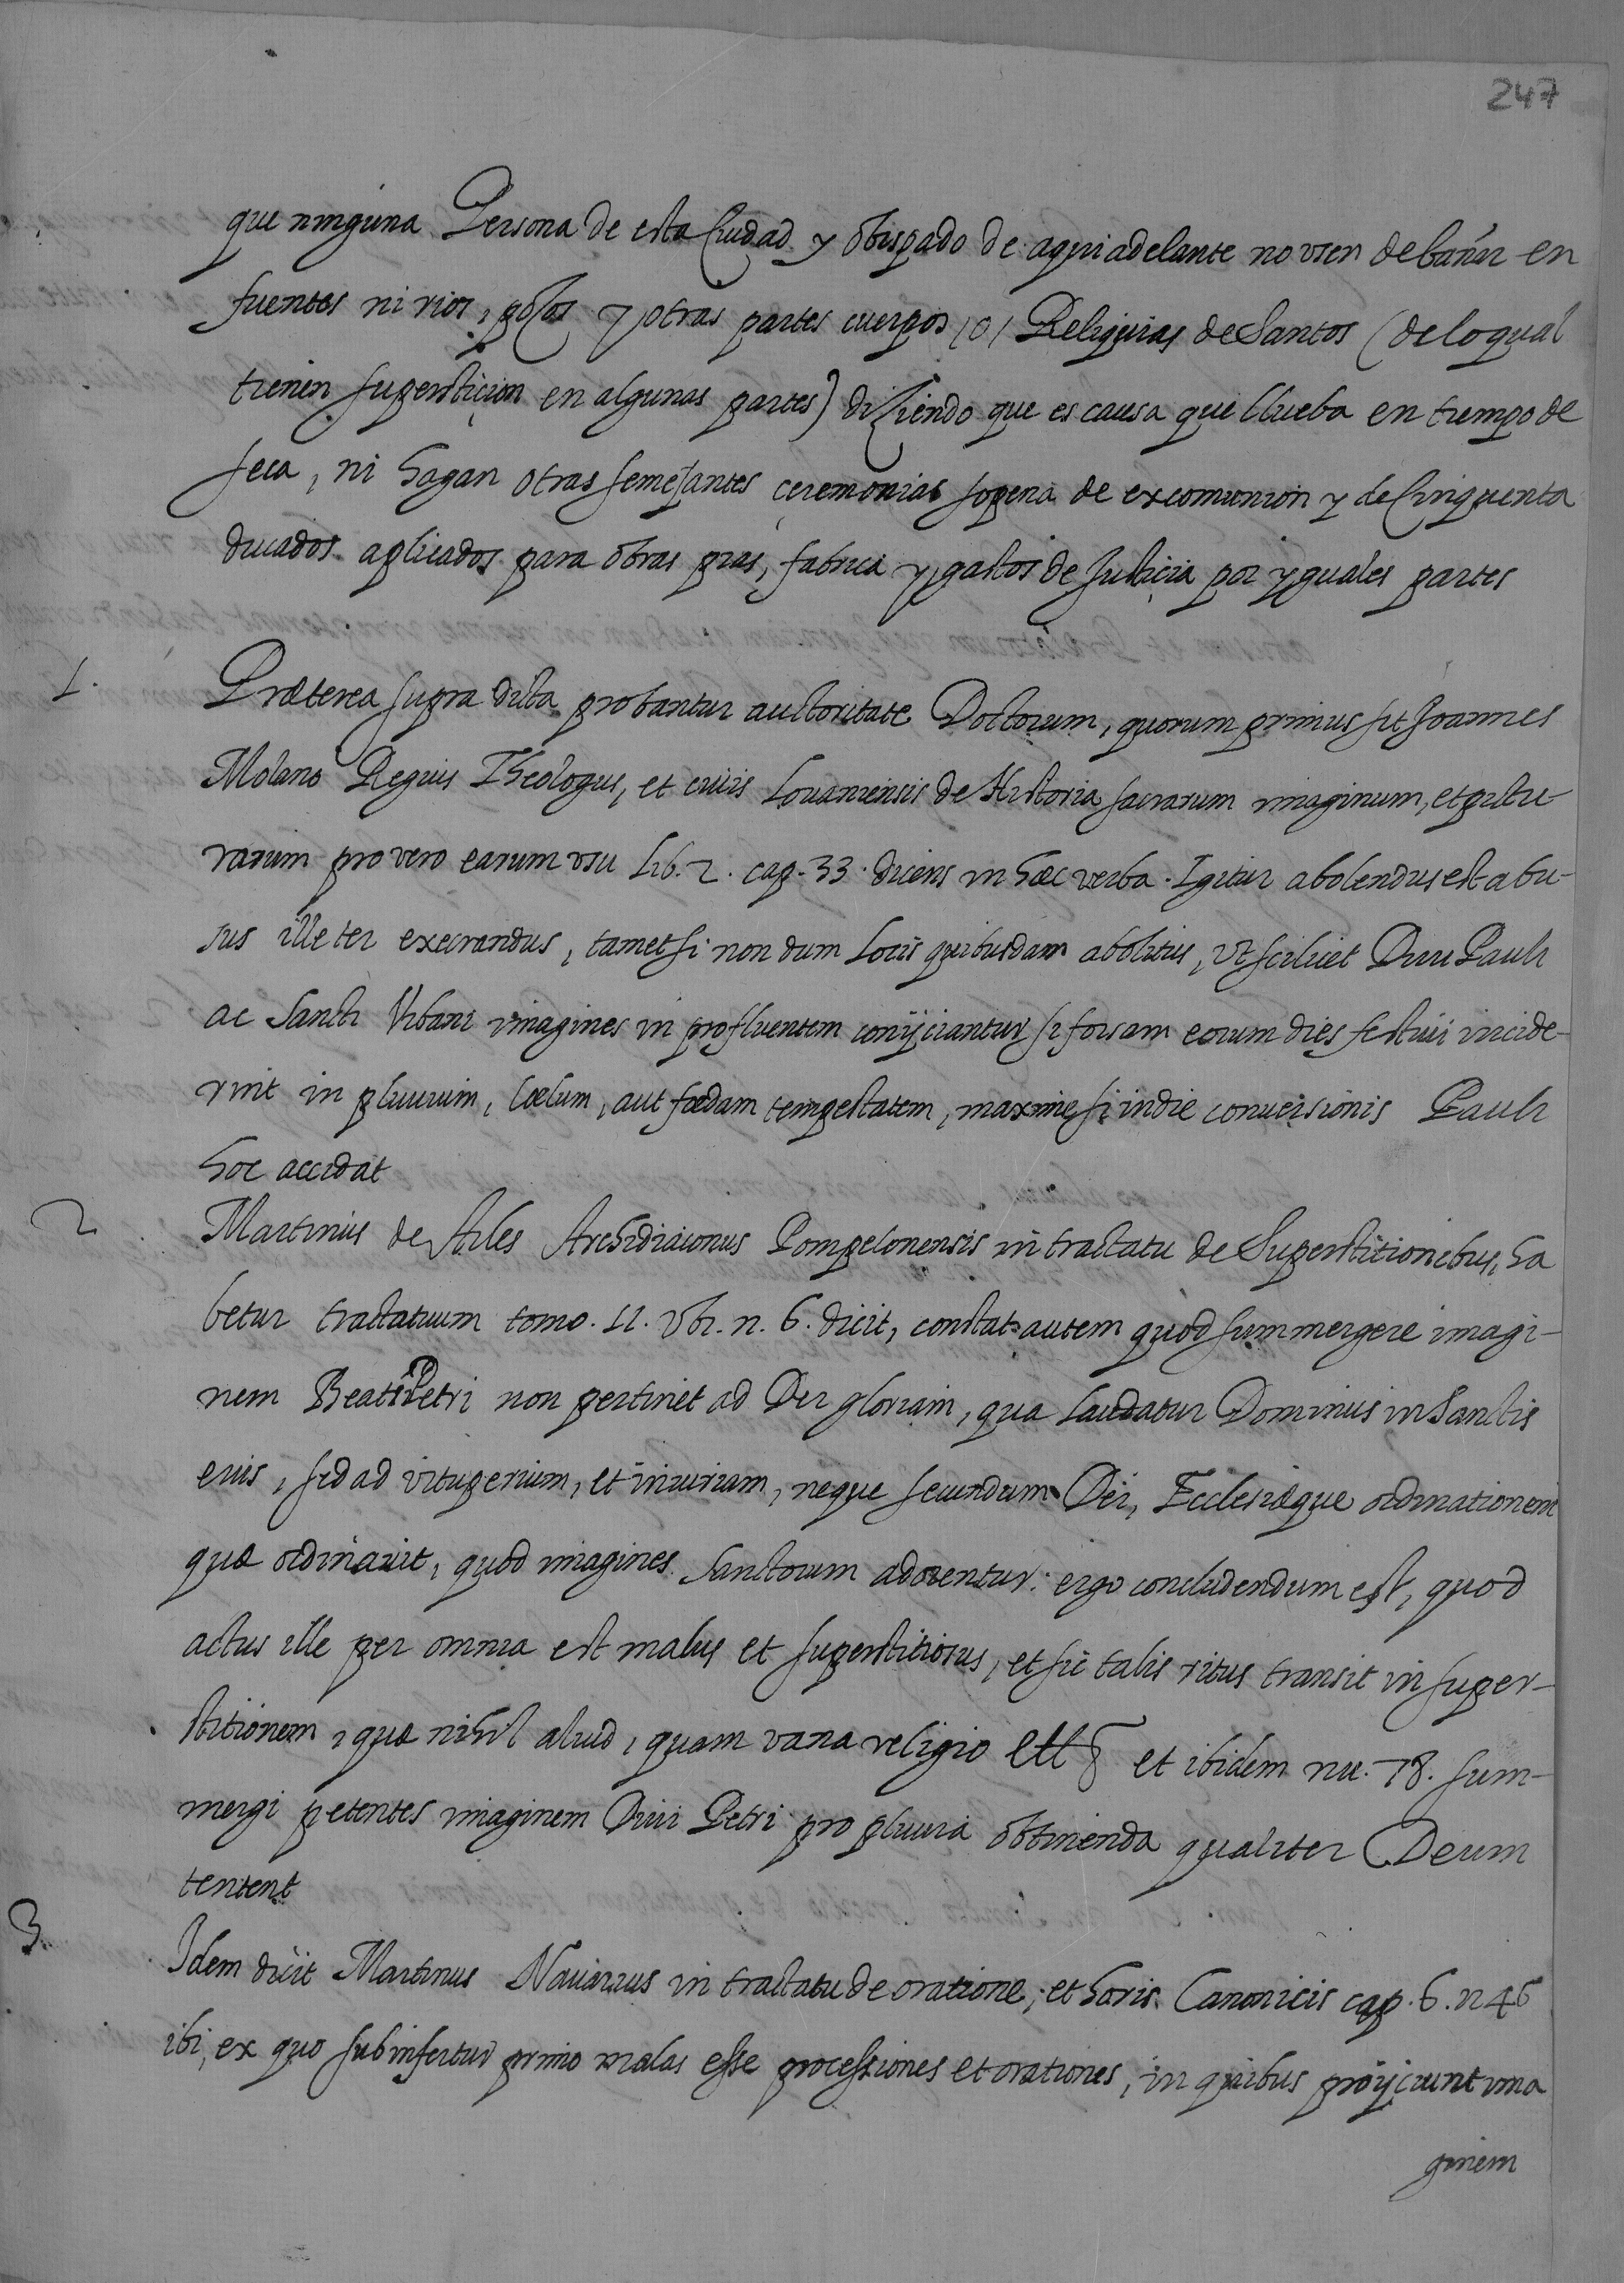 247
que ninguna Persona de esta Ciudad y obispado de aqui adelante no vsen de bañar en
fuentes ni rios, pozos y otras partes cuerpos /o/ Reliquias de Santos (de lo qual
tienen superstiçion en algunas partes) diziendo que es causa que llueba en tiempo de
seca, ni hagan otras semejantes çeremonias sopena de excomunion y de Cinquenta
ducados aplicados para obras pias, fabrica y gastos de Justiçia por yguales partes
1. Præterea supra dicta probantur auctoritate Doctorum, quorum primus sit Joannes
Molano Regius Theologus, et ciuis Louaniensis de Historia sacrarum imaginum, et pictu-
rarum pro vero earum vsu Lib. 2. cap. 33. dicens in hæc verba. Igitur abolendus est abu-
sus ille ter execrandus, tametsi non dum Locis quibusdam abolitus, vt scilicet Diui Pauli
ac Sancti Vrbani imagines in profluentem conijciantur si forsam eorum dies festiui incide-
rint in pluuium, Cœlum, aut fœdam tempestatem, maxime si in die conuersionis Pauli
hoc accidat
2 Martinus de Arles Archidiaconus Pompelonensis in tractatu de Superstitionibus, ha
betur tractatuum tomo. 11. Vbi. n. 6. dicit, constat autem quod summergere imagi-
nem Beati Petri non pertinet ad Dei gloriam, qua Laudatur Dominus in Sanctis
euis, sed ad vituperium, et iniuriam, neque secundum Dei, Ecclesiæque ordinationem
quæ ordinauit, quod imagines Sanctorum adorentur: ergo concludendum est, quod
actus ille per omnia est malus et superstitiosus, et sic talis ritus transit in super-
stitionem, quæ nihil aliud, quam vana religio est et ibidem nu. 78. sum-
mergi petentes imaginem Diui Petri pro pluuia obtinenda qualiter Deum
tentent
3. Idem dicit Martinus Nauarrus in tractatu de oratione, et horis Canonicis cap. 6. n 46
ibi, ex quo subinfertur primo malas esse processiones et orationes, in quibus proijciunt ima
ginem